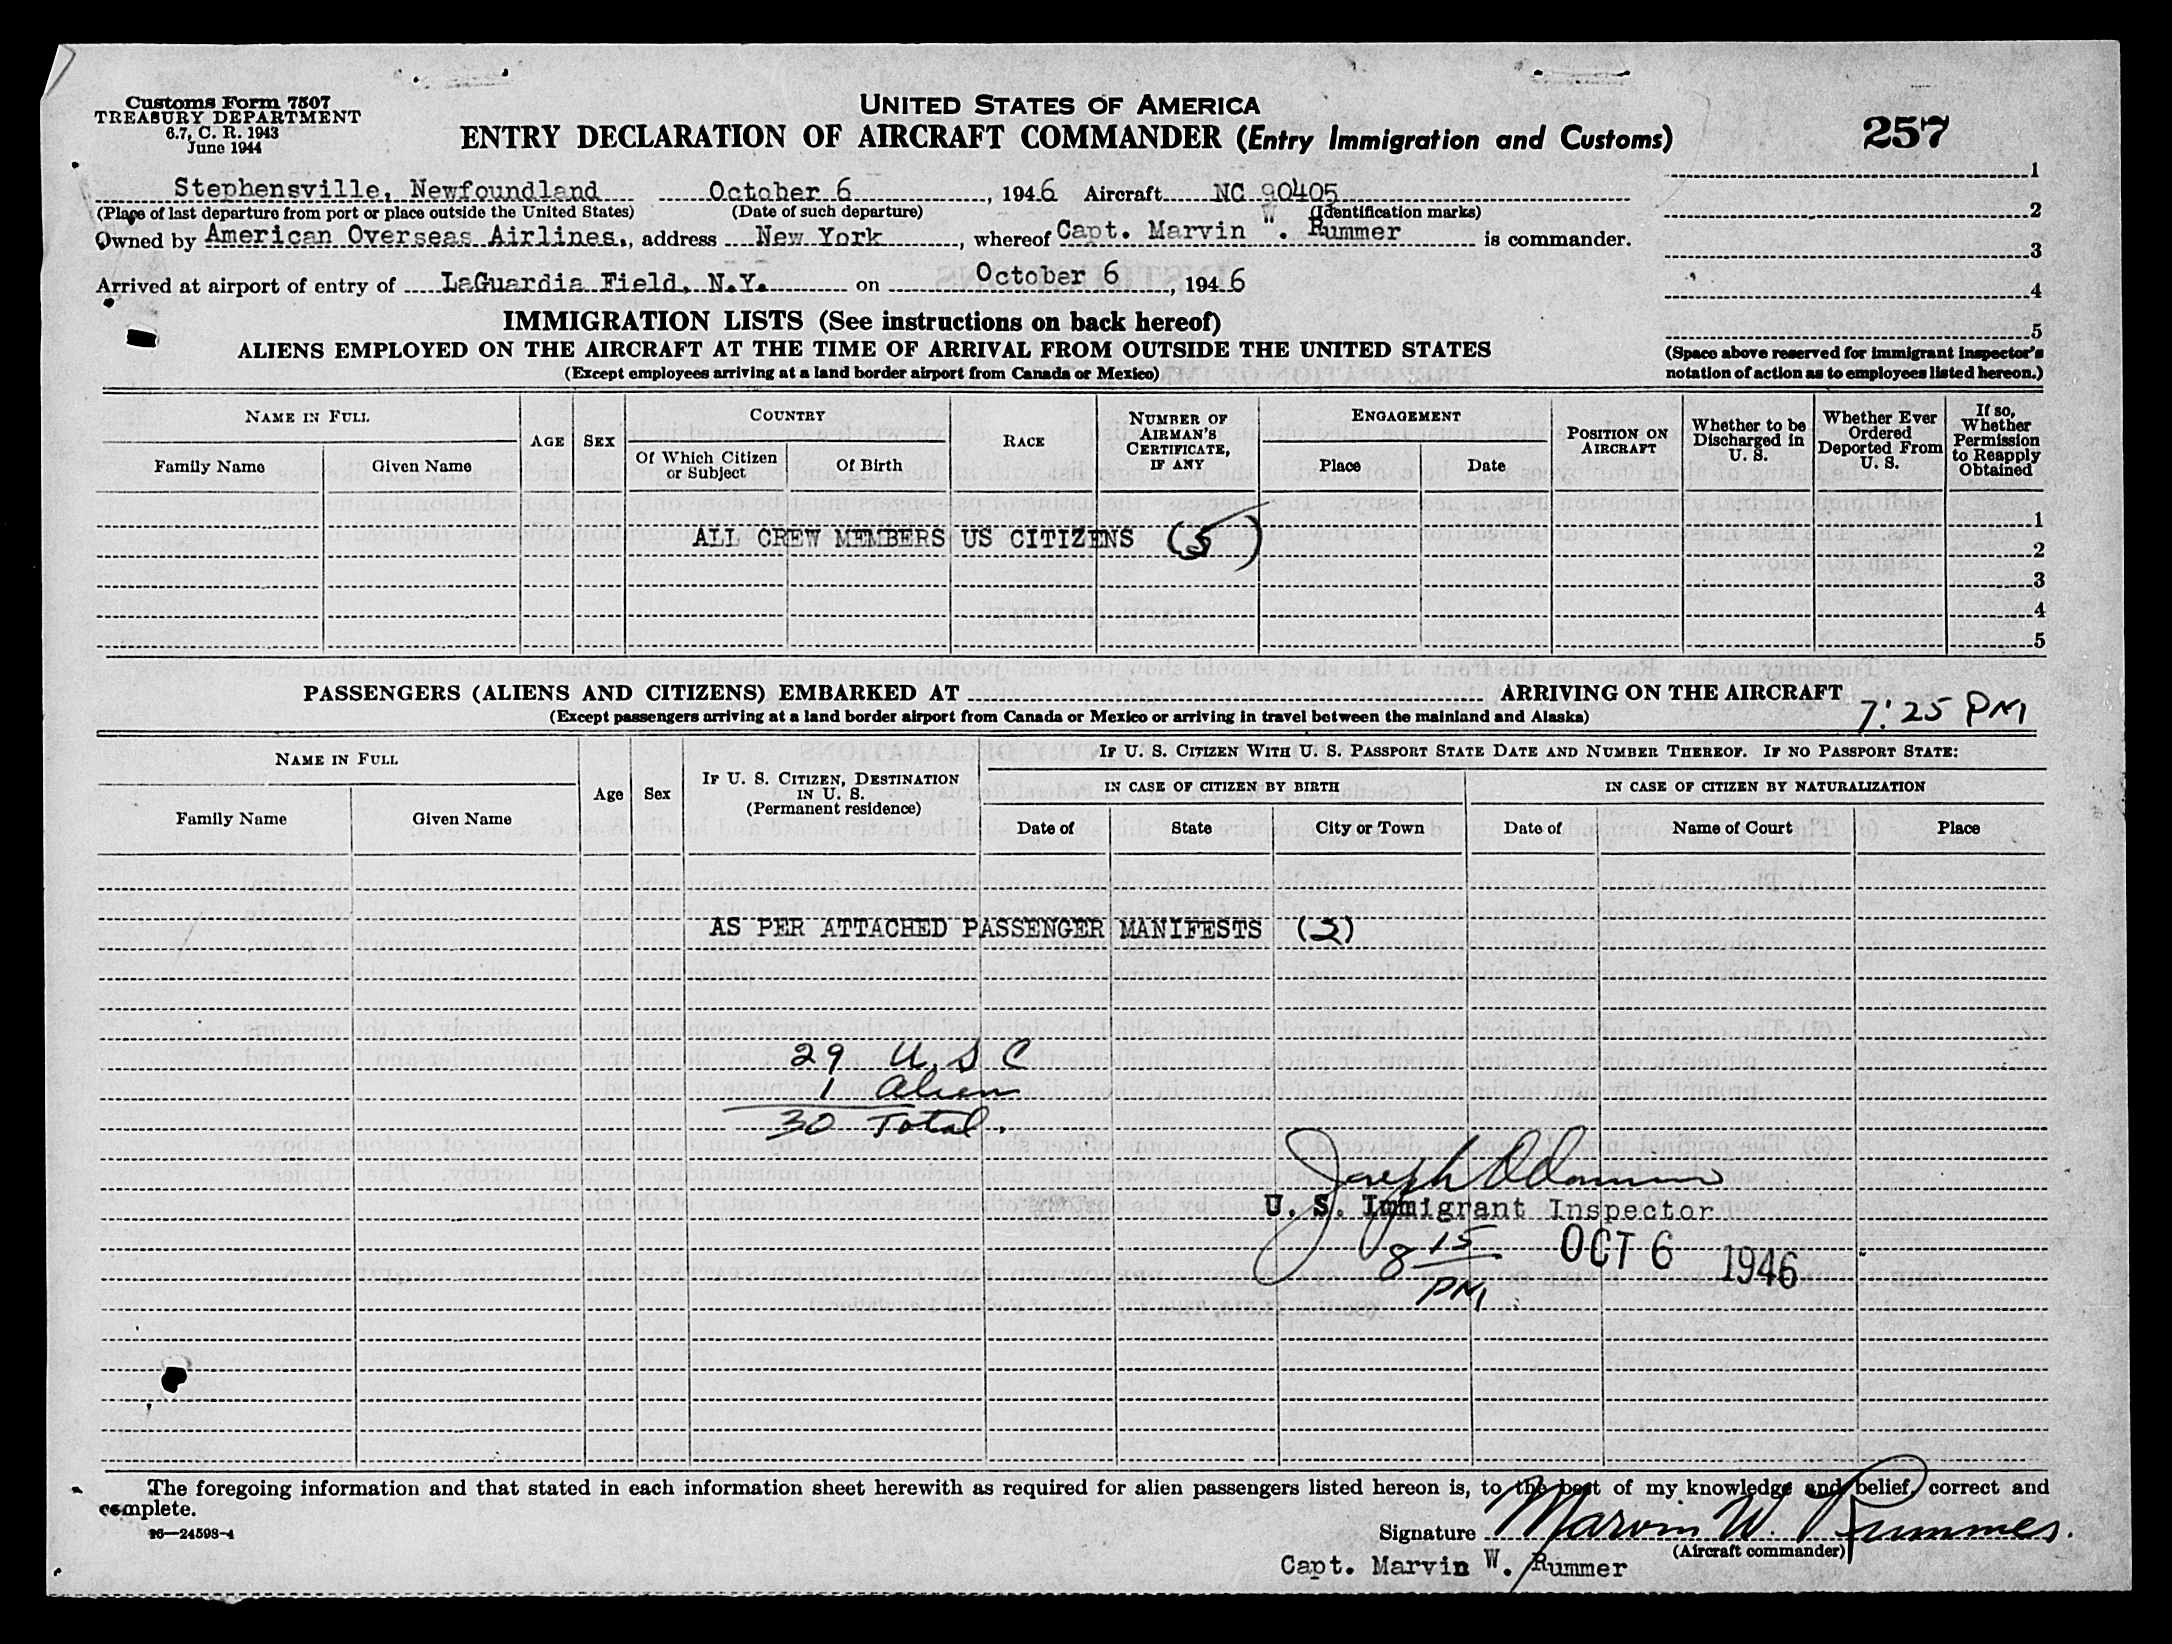 Customs Form 7507
TREASURY DEPARTMENT
6.7, C. R. 1943
June 1944
UNITED STATES OF AMERICA
ENTRY DECLARATION OF AIRCRAFT COMMANDER (Entry Immigration and Customs)
257
Stephensville, Newfoundland October 6, 1946 Aircraft NC 90405
(Place of last departure from port or place outside the United States) (Date of such departure) (Identification marks)
Owned by American Overseas Airlines., address New York, whereof Capt. Marvin W. Rummer is commander.
Arrived at airport of entry of LaGuardia Field, N.Y. on October 6, 1946
1
2
3
4
5
(Space above reserved for immigrant inspector's
notation of action as to employees listed hereon.)
IMMIGRATION LISTS (See instructions on back hereof)
ALIENS EMPLOYED ON THE AIRCRAFT AT THE TIME OF ARRIVAL FROM OUTSIDE THE UNITED STATES
(Except employees arriving at a land border airport from Canada or Mexico)
NAME IN FULL
Family Name
Given Name
AGE
SEX
COUNTRY
Of Which Citizen
or Subject
Of Birth
RACE
NUMBER OF
AIRMAN'S
CERTIFICATE,
IF ANY
ENGAGEMENT
Place
Date
POSITION ON
AIRCRAFT
Whether to be
Discharged in
U. S.
Whether Ever
Ordered
Deported From
U. S.
If so,
Whether
Permission
to Reapply
Obtained
1
ALL CREW MEMBERS US CITIZENS (5)
2
3
4
5
PASSENGERS (ALIENS AND CITIZENS) EMBARKED AT ARRIVING ON THE AIRCRAFT
(Except passengers arriving at a land border airport from Canada or Mexico or arriving in travel between the mainland and Alaska)
7:25 PM
NAME IN FULL
Family Name
Given Name
Age
Sex
IF U. S. CITIZEN, DESTINATION
IN U. S.
(Permanent residence)
IF U. S. CITIZEN WITH U. S. PASSPORT STATE DATE AND NUMBER THEREOF. IF NO PASSPORT STATE:
IN CASE OF CITIZEN BY BIRTH
IN CASE OF CITIZEN BY NATURALIZATION
Date of
State
City or Town
Date of
Name of Court
Place
AS PER ATTACHED PASSENGER MANIFESTS (2)
29 U.S C
1 Alien
30 Total.
Joseph
U. S. Immigrant Inspector
8 15 PM
OCT 6 1946
The foregoing information and that stated in each information sheet herewith as required for alien passengers listed hereon is, to the best of my knowledge and belief, correct and
complete.
16—24598-4
Signature Marvin W. Rummer.
(Aircraft commander)
Capt. Marvin W. Rummer